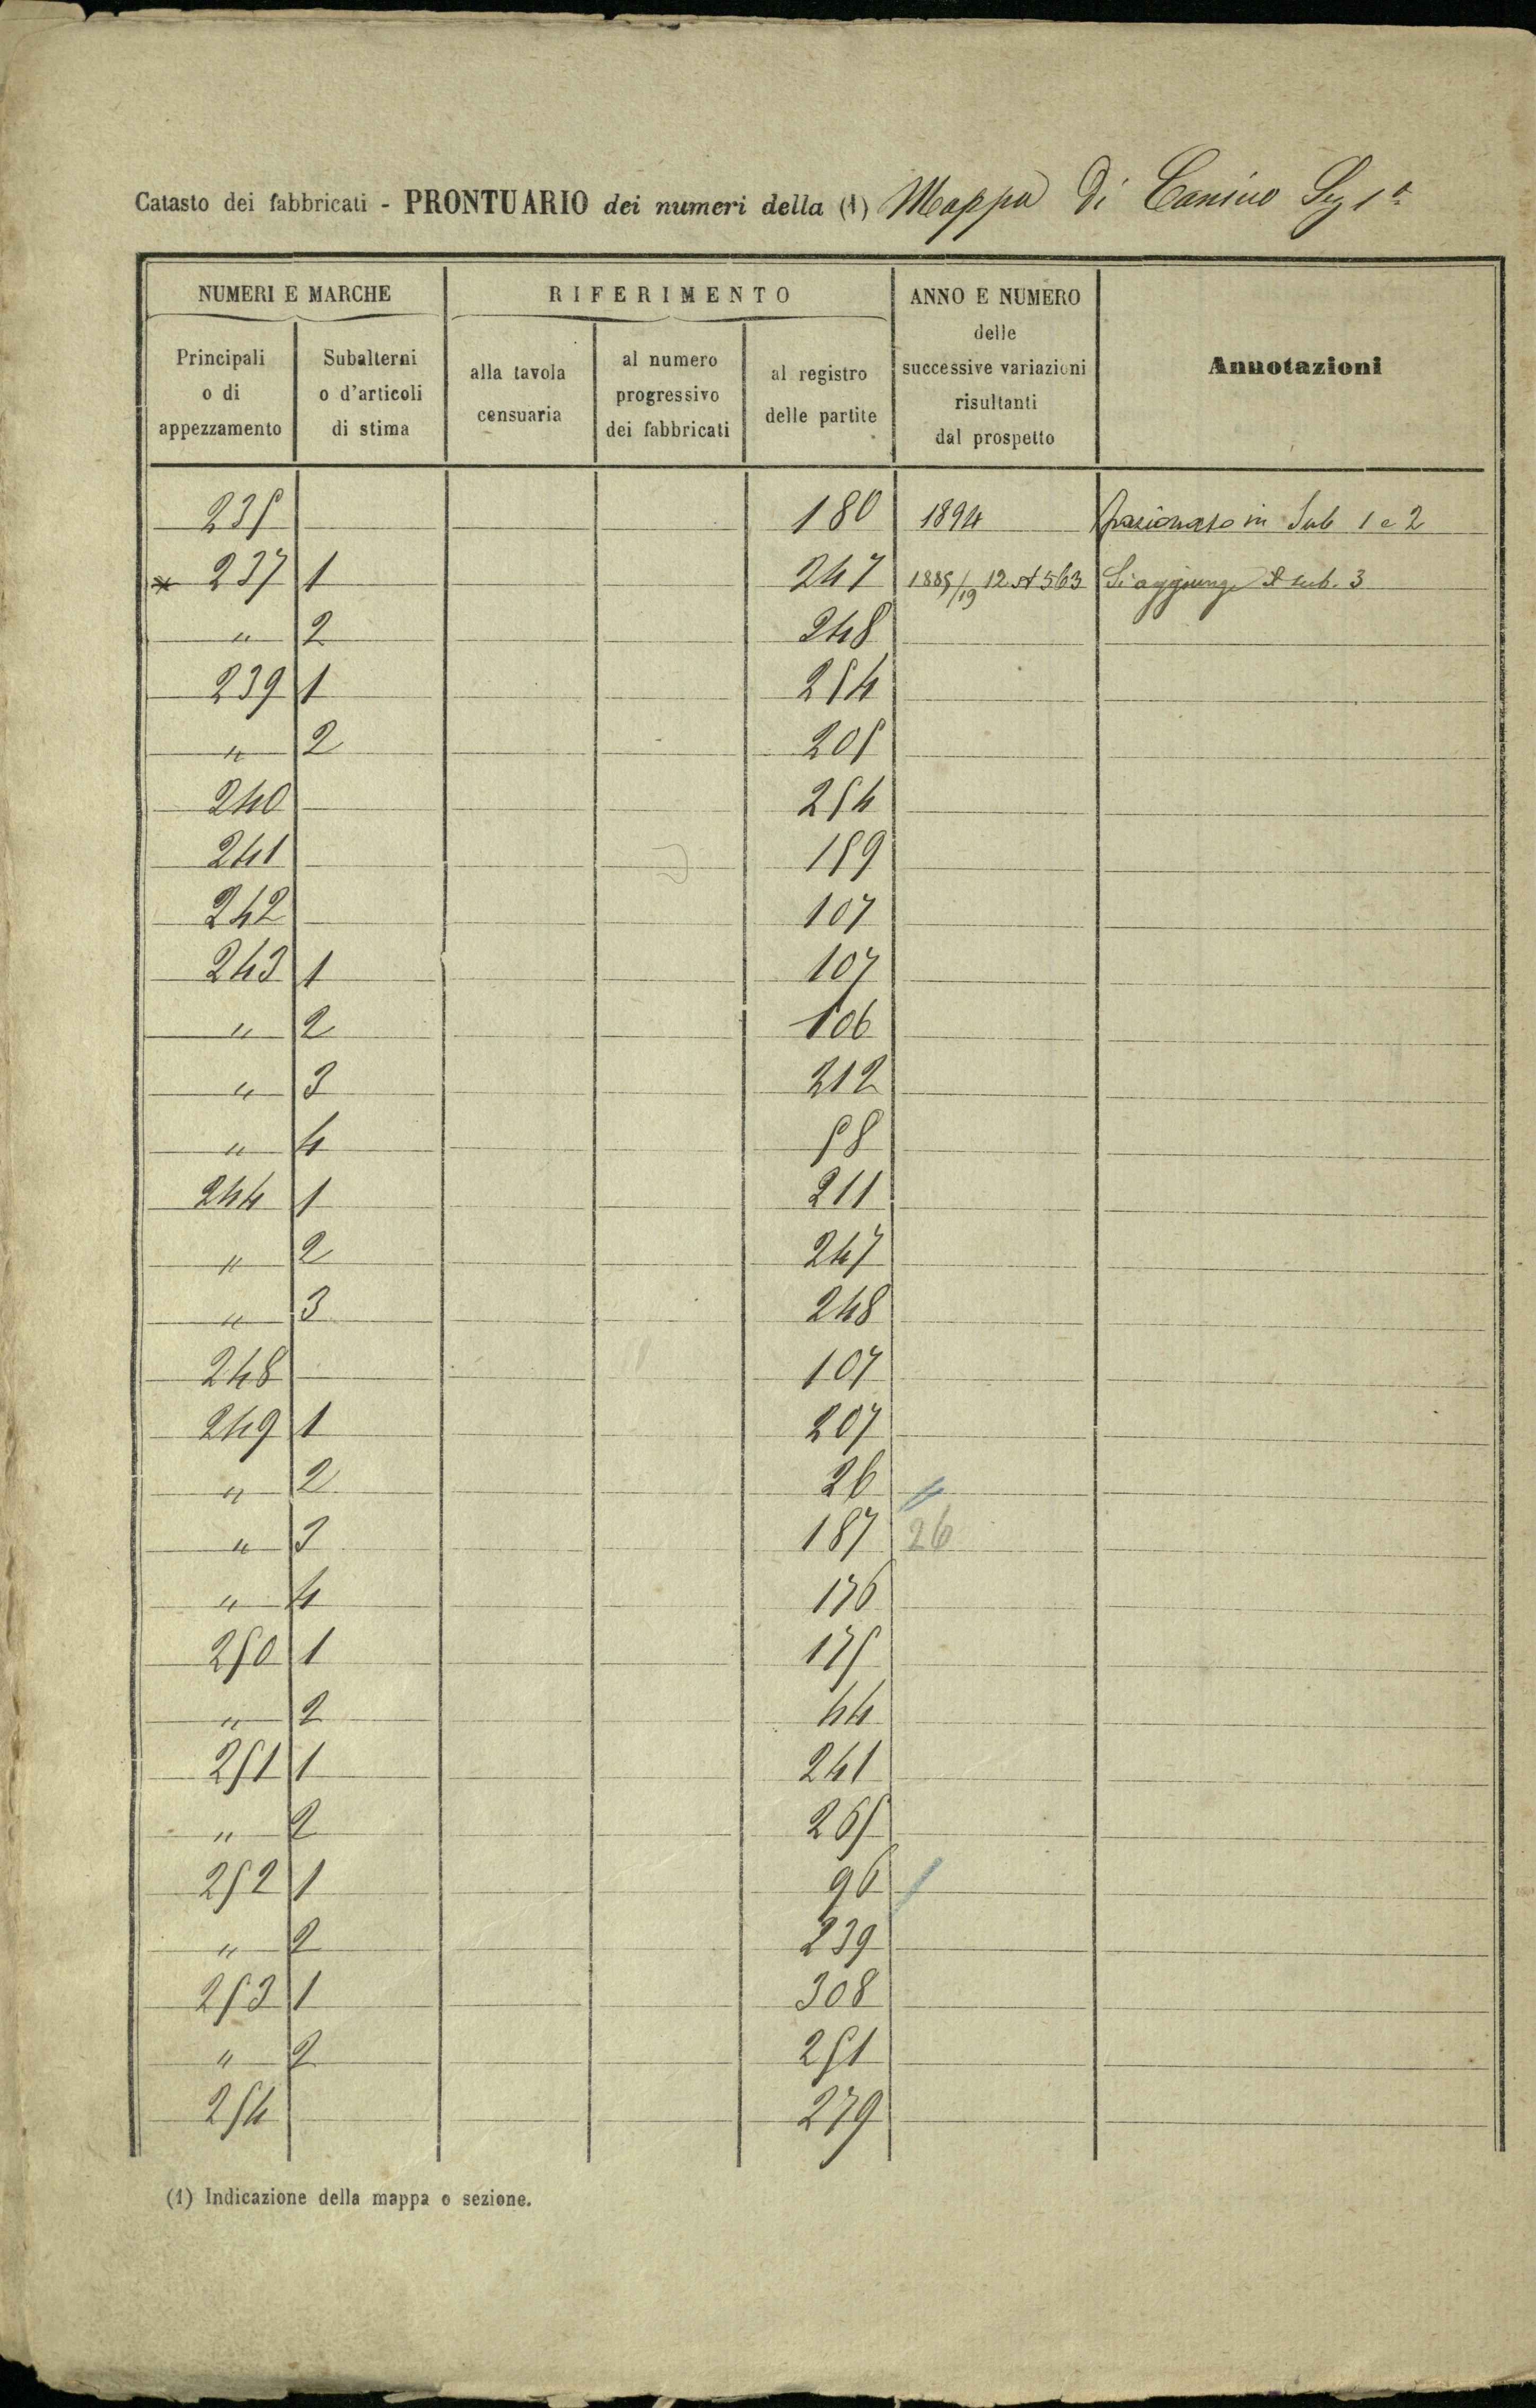 Catasto dei fabbricati - PRONTUARIO dei numeri della (1) Mappa Di Canino Sez 1ª
NUMERI E MARCHE
RIFERIMENTO
ANNO E NUMERO
delle
successive variazioni
risultanti
dal prospetto
Annotazioni
Principali
o di
appezzamento
Subalterni
o d'articoli
di stima
alla tavola
censuaria
al numero
progressivo
dei fabbricati
al registro
delle partite
235 180 1894 frazionato in Sub 1 e 2
* 237 1 247 12 563 Si aggiunge sub. 3
" 2 248
239 1 254
" 2 205
240 254
241 159
242 107
243 1 107
" 2 106
" 3 212
" 4 58
244 1 211
" 2 247
" 3 248
248 107
249 1 207
" 2 26
" 3 187 26
" 4 176
250 1 175
" 2 44
251 1 241
" 2 265
252 1 96
" 2 239
253 1 308
" 2 251
254 279
(1) Indicazione della mappa o sezione.